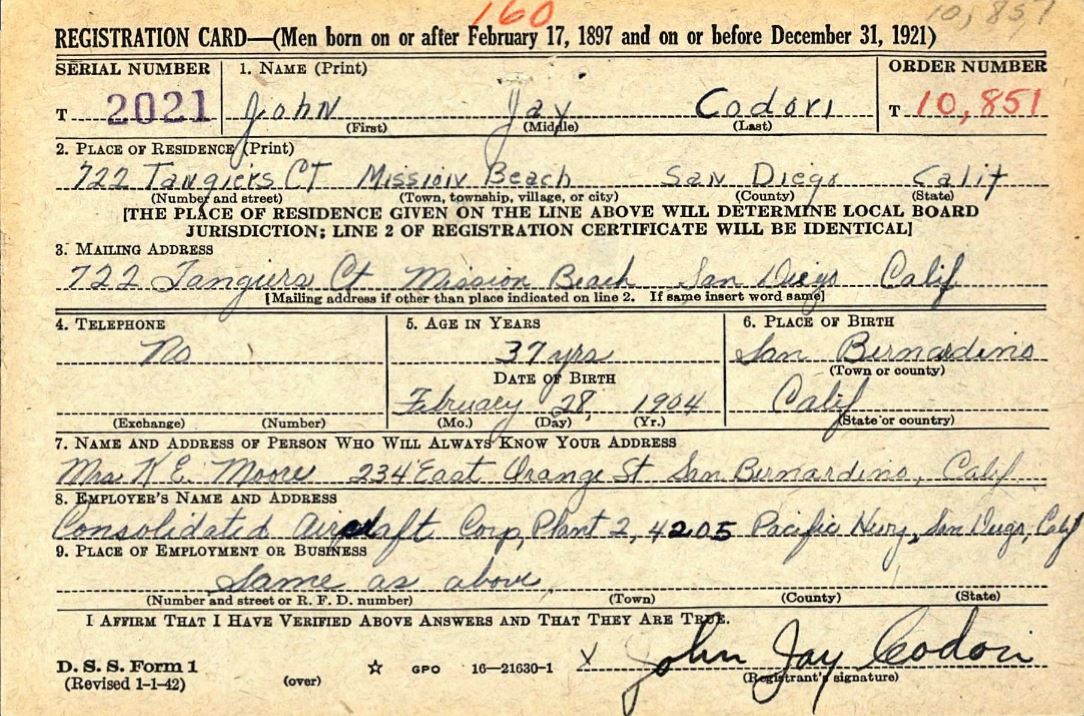 160
10,857
REGISTRATION CARD—(Men born on or after February 17, 1897 and on or before December 31, 1921)
SERIAL NUMBER 1. NAME (Print) ORDER NUMBER
T 2021 John Jay Codori T 10,851
(First) (Middle) (Last)
2. PLACE OF RESIDENCE (Print)
722 Tangiers CT Mission Beach San Diego Calif
(Number and street) (Town, township, village, or city) (County) (State)
[THE PLACE OF RESIDENCE GIVEN ON THE LINE ABOVE WILL DETERMINE LOCAL BOARD
JURISDICTION; LINE 2 OF REGISTRATION CERTIFICATE WILL BE IDENTICAL]
3. MAILING ADDRESS
722 Tangiers Ct Mission Beach San Diego Calif
[Mailing address if other than place indicated on line 2. If same insert word same]
4. TELEPHONE 5. AGE IN YEARS 6. PLACE OF BIRTH
No 37 yrs San Bernardino
(Town or county)
DATE OF BIRTH
February 28, 1904 Calif
(Exchange) (Number) (Mo.) (Day) (Yr.) (State or country)
7. NAME AND ADDRESS OF PERSON WHO WILL ALWAYS KNOW YOUR ADDRESS
Mrs K E. Moore 234 East Orange St San Bernardino, Calif
8. EMPLOYER'S NAME AND ADDRESS
Consolidated Aircraft Corp, Plant 2, 4205 Pacific Hwy, San Diego, Calif
9. PLACE OF EMPLOYMENT OR BUSINESS
Same as above
(Number and street or R. F. D. number) (Town) (County) (State)
I AFFIRM THAT I HAVE VERIFIED ABOVE ANSWERS AND THAT THEY ARE TRUE.
D. S. S. Form 1 GPO 16—21630-1 X John Jay Codori
(Revised 1-1-42) (over) (Registrant's signature)